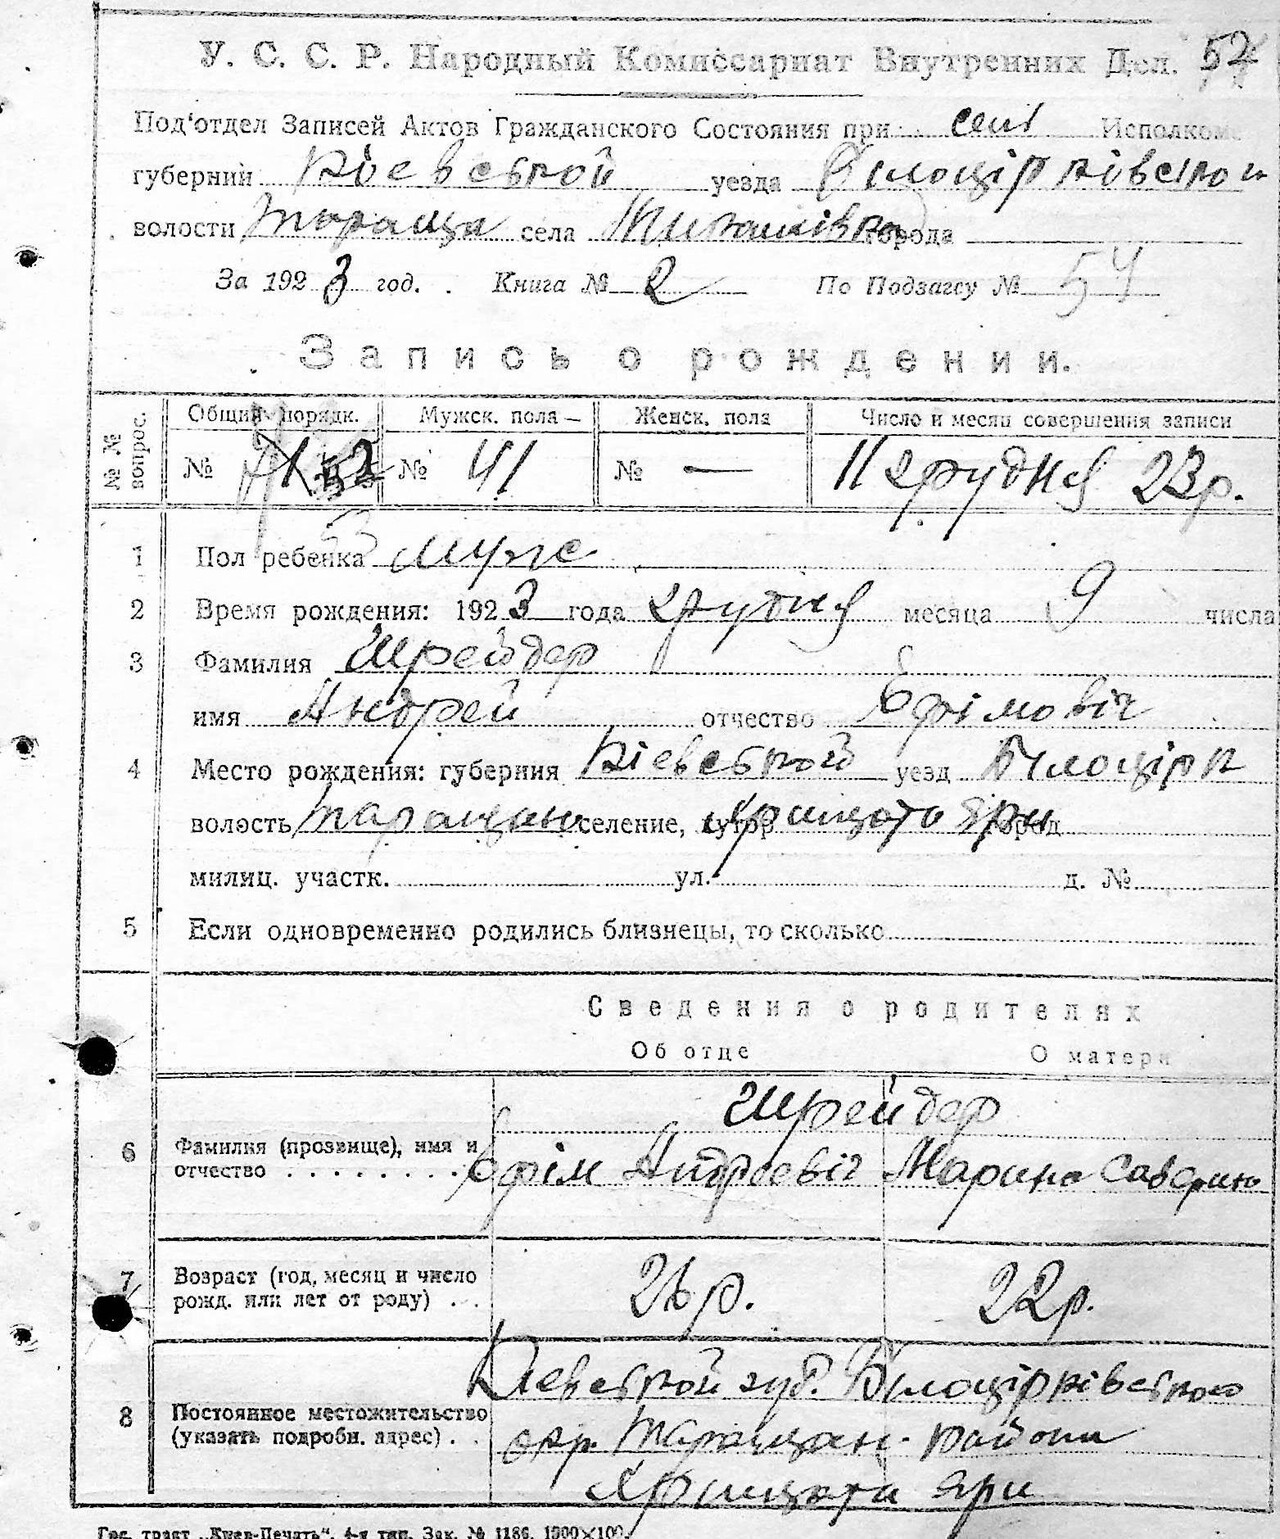 У. С. С. Р. Народный Комиссариат Внутренних Дел. 52
Под'отдел Записей Актов Гражданского Состояния при сель Исполкоме
губернии Кіевской уезда Білоцірківской
волости Тараща села города
За 1923 год. Книга № 2 По Подзагсу № 54
Запись о рождении.
№ № вопрос. Общий порядк. Мужск. пола – Женск. пола Число и месяц совершения записи
№ № 41 № — 11 грудня 23 р.
1 Пол ребенка муж
2 Время рождения: 1923 года грудня месяца 9 числа
3 Фамилия Шрейдер
имя Андрей отчество Ефімовіч
4 Место рождения: губерния Кіевской уезд Білоцірк
волость Таращан селение, хутор Яри город
милиц. участк. ул. д. №
5 Если одновременно родились близнецы, то сколько
Сведения о родителях
Об отце О матери
Шрейдер
6 Фамилия (прозвище), имя и
отчество . . . . . . . . Ефім Андреевіч Марина
7 Возраст (год, месяц и число
рожд. или лет от роду) . . 26 р. 22 р.
Киевской губ. Білоцірківского
8 Постоянное местожительство
(указать подробн. адрес) . . окр. Таращан. района
Яри
Гос. трест „Киев-Печать“, 4-я тип. Зак. № 1186. 1000×100.